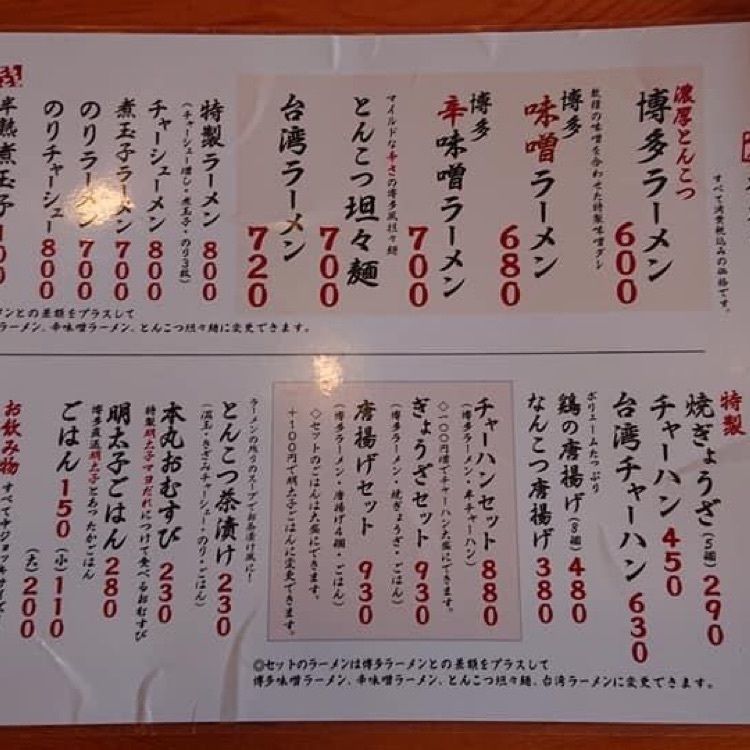 すべて消費税込みの価格です。
濃厚とんこつ
博多ラーメン 600
数種の味噌を合わせた特製味噌ダレ
博多
味噌ラーメン 680
博多
辛味噌ラーメン 700
マイルドな辛さの博多風担々麺
とんこつ坦々麺 700
台湾ラーメン 720
特製ラーメン 800
(チャーシュー増し・煮玉子・のり3枚)
チャーシューメン 800
煮玉子ラーメン 700
のりラーメン 700
のりチャーシュー 800
半熟煮玉子 100
メンとの差額をプラスして
ラーメン、辛味噌ラーメン、とんこつ坦々麺に変更できます。
特製
焼ぎょうざ(5個) 290
チャーハン 450
台湾チャーハン 630
ボリュームたっぷり
鶏の唐揚げ(8個) 480
なんこつ唐揚げ 380
チャーハンセット 880
(博多ラーメン・半チャーハン)
◇100円増でチャーハン大盛にできます。
ぎょうざセット 930
(博多ラーメン・焼ぎょうざ・ごはん)
唐揚げセット 930
(博多ラーメン・唐揚げ4個・ごはん)
◇セットのごはんは大盛にできます。
+100円で明太子ごはんに変更できます。
◎セットのラーメンは博多ラーメンとの差額をプラスして
博多味噌ラーメン、辛味噌ラーメン、とんこつ坦々麺、台湾ラーメンに変更できます。
ラーメンの残りのスープでお茶漬け風に!
とんこつ茶漬け 230
(温玉・きざみチャーシュー・のり・ごはん)
本丸おむすび 230
特製明太子マヨだれにつけて食べるおむすび
明太子ごはん 280
博多直送明太子とあったかごはん
ごはん 150 (小)110
(大)200
お飲み物
すべて中ジョッキサイズ